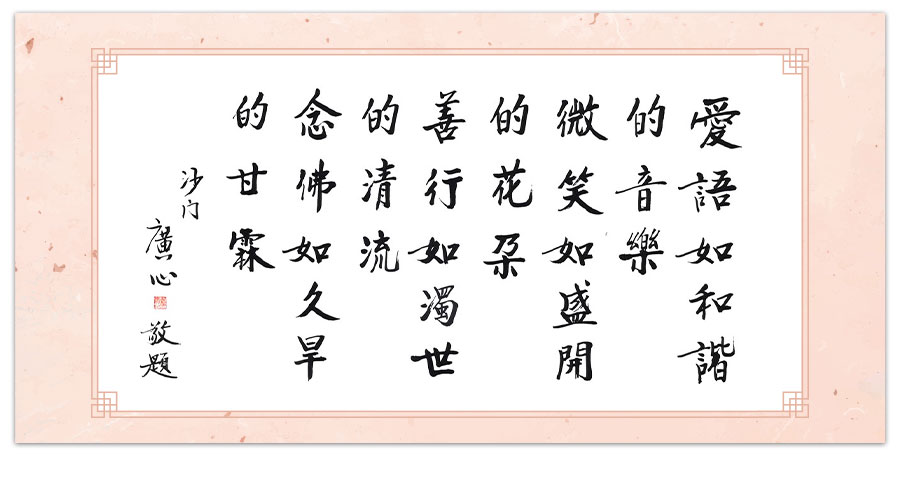 愛語如和諧
的音樂
微笑如盛開
的花朵
善行如濁世
的清流
念佛如久旱
的甘霖
沙门
廣心
敬題